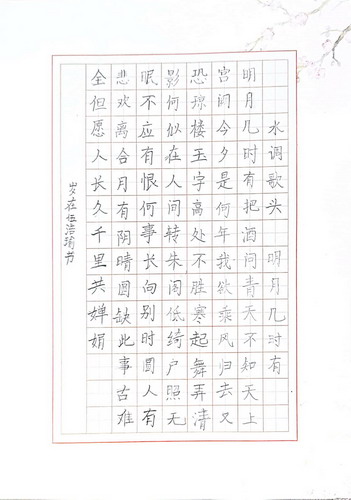 水调歌头 明月几时有
明月几时有把酒问青天不知天上
宫阙今夕是何年我欲乘风归去又
恐琼楼玉宇高处不胜寒起舞弄清
影何似在人间转朱阁低绮户照无
眠不应有恨何事长向别时圆人有
悲欢离合月有阴晴圆缺此事古难
全但愿人长久千里共婵娟
岁在伍浩瑜书